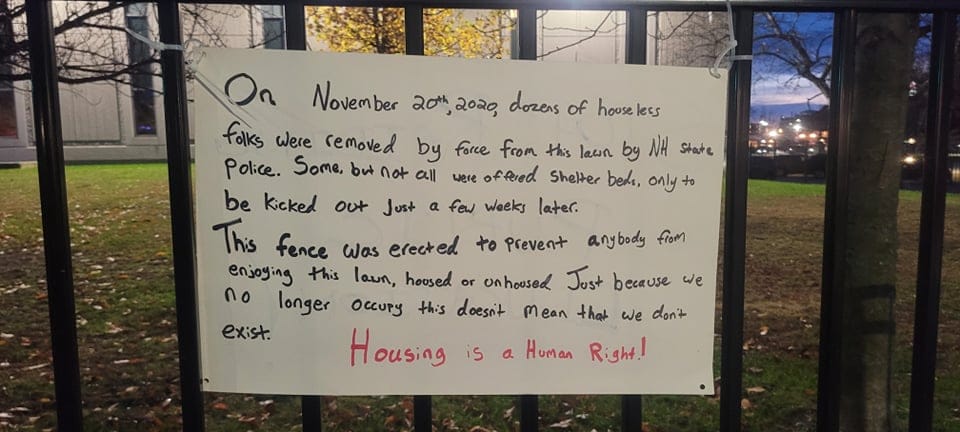 On November 20th, 2020, dozens of houseless
folks were removed by force from this lawn by NH State
Police. Some, but not all were offered shelter beds, only to
be kicked out Just a few weeks later.
This fence was erected to prevent anybody from
enjoying this lawn, housed or unhoused Just because we
no longer occupy this doesn't mean that we don't
exist.
Housing is a Human Right!